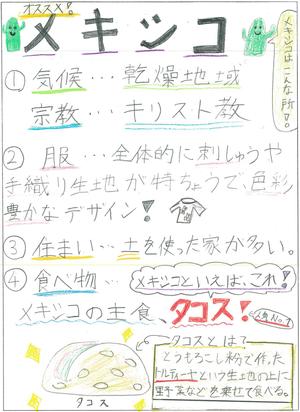 オススメ!
メキシコ
メキシコはこんな所!!
① 気候…乾燥地域
宗教…キリスト教
② 服…全体的に刺しゅうや
手織り生地が特ちょうで、色彩
豊かなデザイン!
③ 住まい…土を使った家が多い。
④ 食べ物…メキシコといえば、これ!
メキシコの主食、タコス!
人気No.1
タコス
タコスとは?
とうもろこし粉で作った
トルティーヤというう生地の上に
野菜などを乗せて食べる。